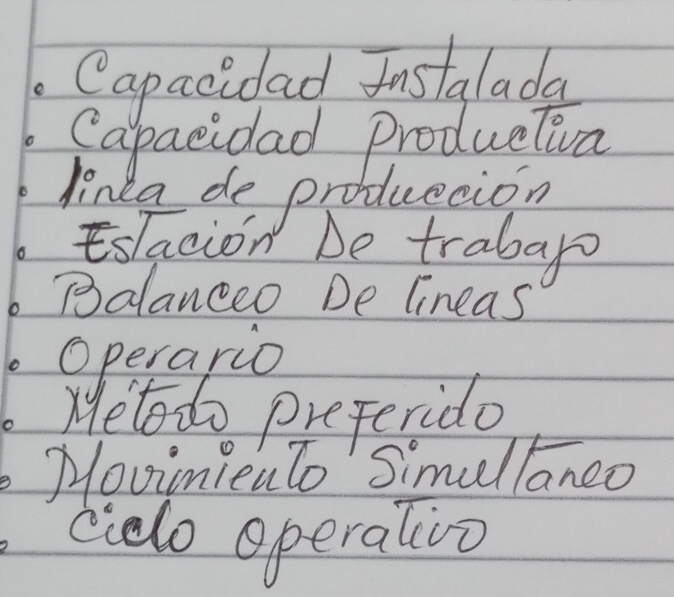 . Capacidad Instalada
. Capacidad Productiva
. línea de producción
. Estación De trabajo
. Balanceo De lineas
. Operario
. Método preferido
. Movimiento Simultaneo
. Ciclo operativo